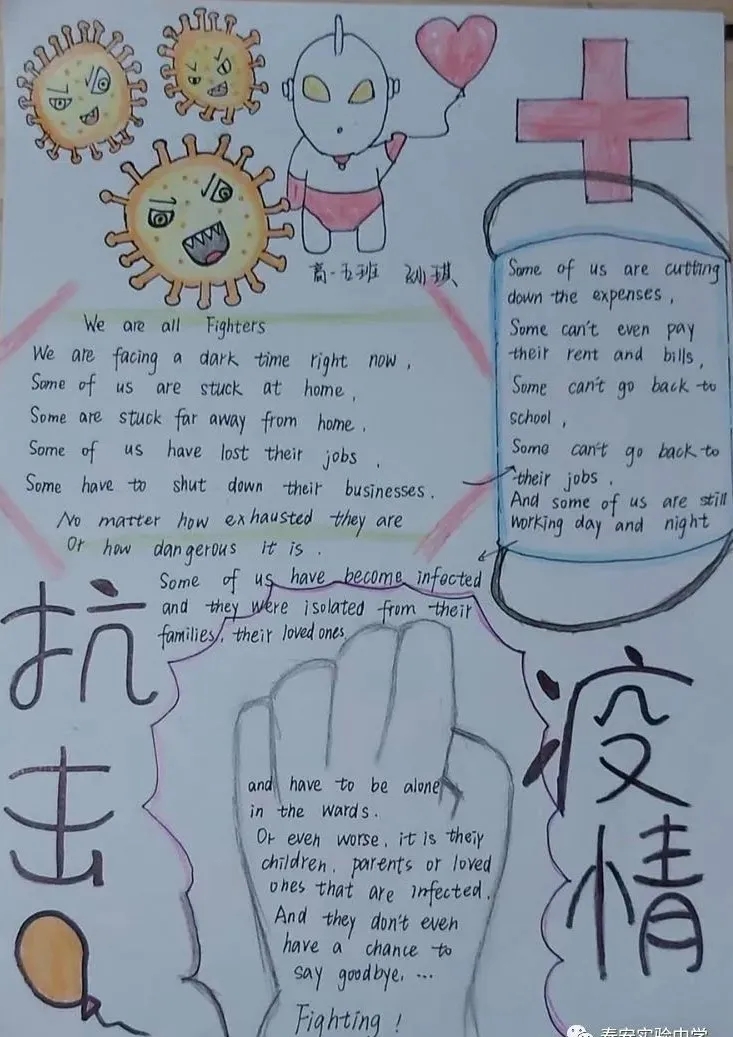 高一五班 孙琪
We are all Fighters
We are facing a dark time right now,
Some of us are stuck at home,
Some are stuck far away from home.
Some of us have lost their jobs,
Some have to shut down their businesses.
Some of us are cutting
down the expenses,
Some can't even pay
their rent and bills,
Some can't go back to
school,
Some can't go back to
their jobs.
And some of us are still
working day and night
No matter how exhausted they are
Or how dangerous it is.
Some of us have become infected
and they were isolated from their
families, their loved ones
and have to be alone
in the wards.
Or even worse, it is their
children, parents or loved
ones that are infected.
And they don't even
have a chance to
say goodbye. ...
Fighting!
抗
击
疫
情
泰安实验中学